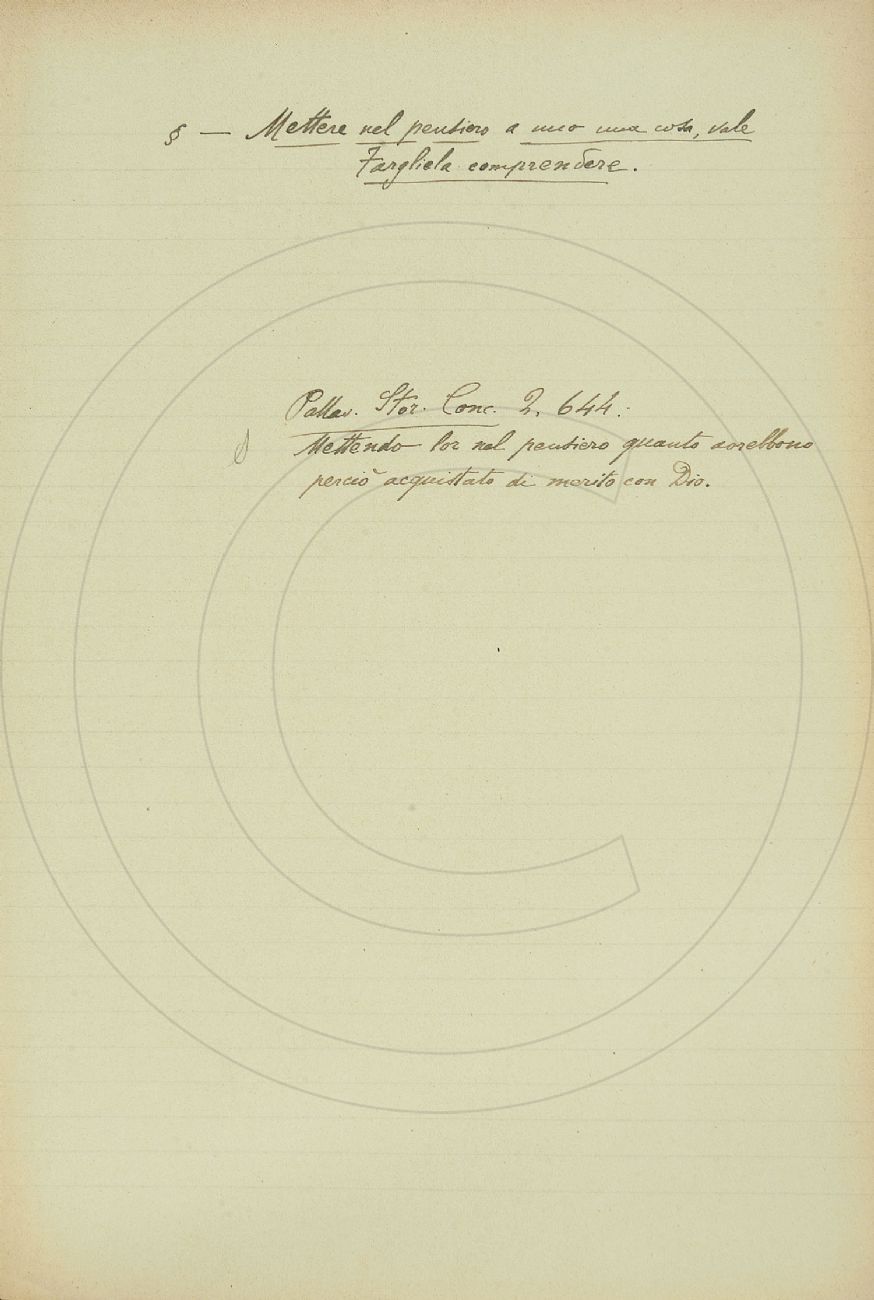 § — Mettere nel pensiero a uno una cosa, vale
Fargliela comprendere.
Pallav. Stor. Conc. 2. 644.
Mettendo lor nel pensiero quanto avrebbono
perciò acquistato di merito con Dio.